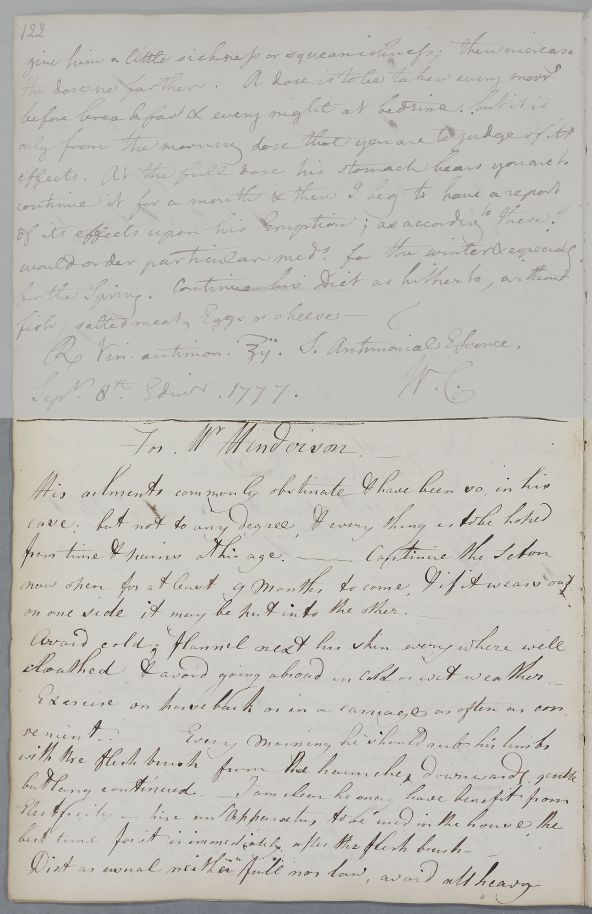 122
give him a little sickness or squeamishness; then increase
the dose no farther. A dose is to be taken every morn.g
before breakfast & every night at bedtime. but it is
only from the morning dose that you are to judge of its
effects. At the full dose his stomach bears you are to
continue it for a month & then I beg to have a report
of its effects upon his Eruption; as according to these I
would order particular meds. for the winter & especially
for the Spring. Continue his Diet as hitherto, without
fish, salted meat, Eggs or cheese —
Rx Vin. antimon. ℥ij. S. Antimonial Essence.
Sepr. 8th Edinr. 1777. W.C.
For Mr Henderson —
His ailments commonly obstinate & have been so in his
case; but not to any degree, & every thing is to be hoped
from time & pains at his age. — Continue the Seton
now open for at least 9 Months to come, & if it wears out
on one side it may be put into the other. —
Avoid cold; flannel next his skin every where well
cloathed & avoid going abroad in cold or wet weather. —
Exercise on horseback or in a carriage as often as con-
venient. Every Morning he should rub his limbs
with the flesh brush from the haunches downwards, gentle
but long continued. — I am clear he may have benefit from
Electricity — hire an Apparatus to be used in the house, the
best time for it is immediately after the flesh brush —
Diet as usual neither full nor low, avoid all heavy